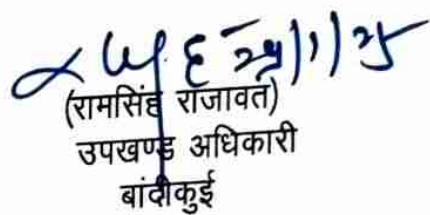 (रामसिंह राजावत)
उपखण्ड अधिकारी
बांदीकुई